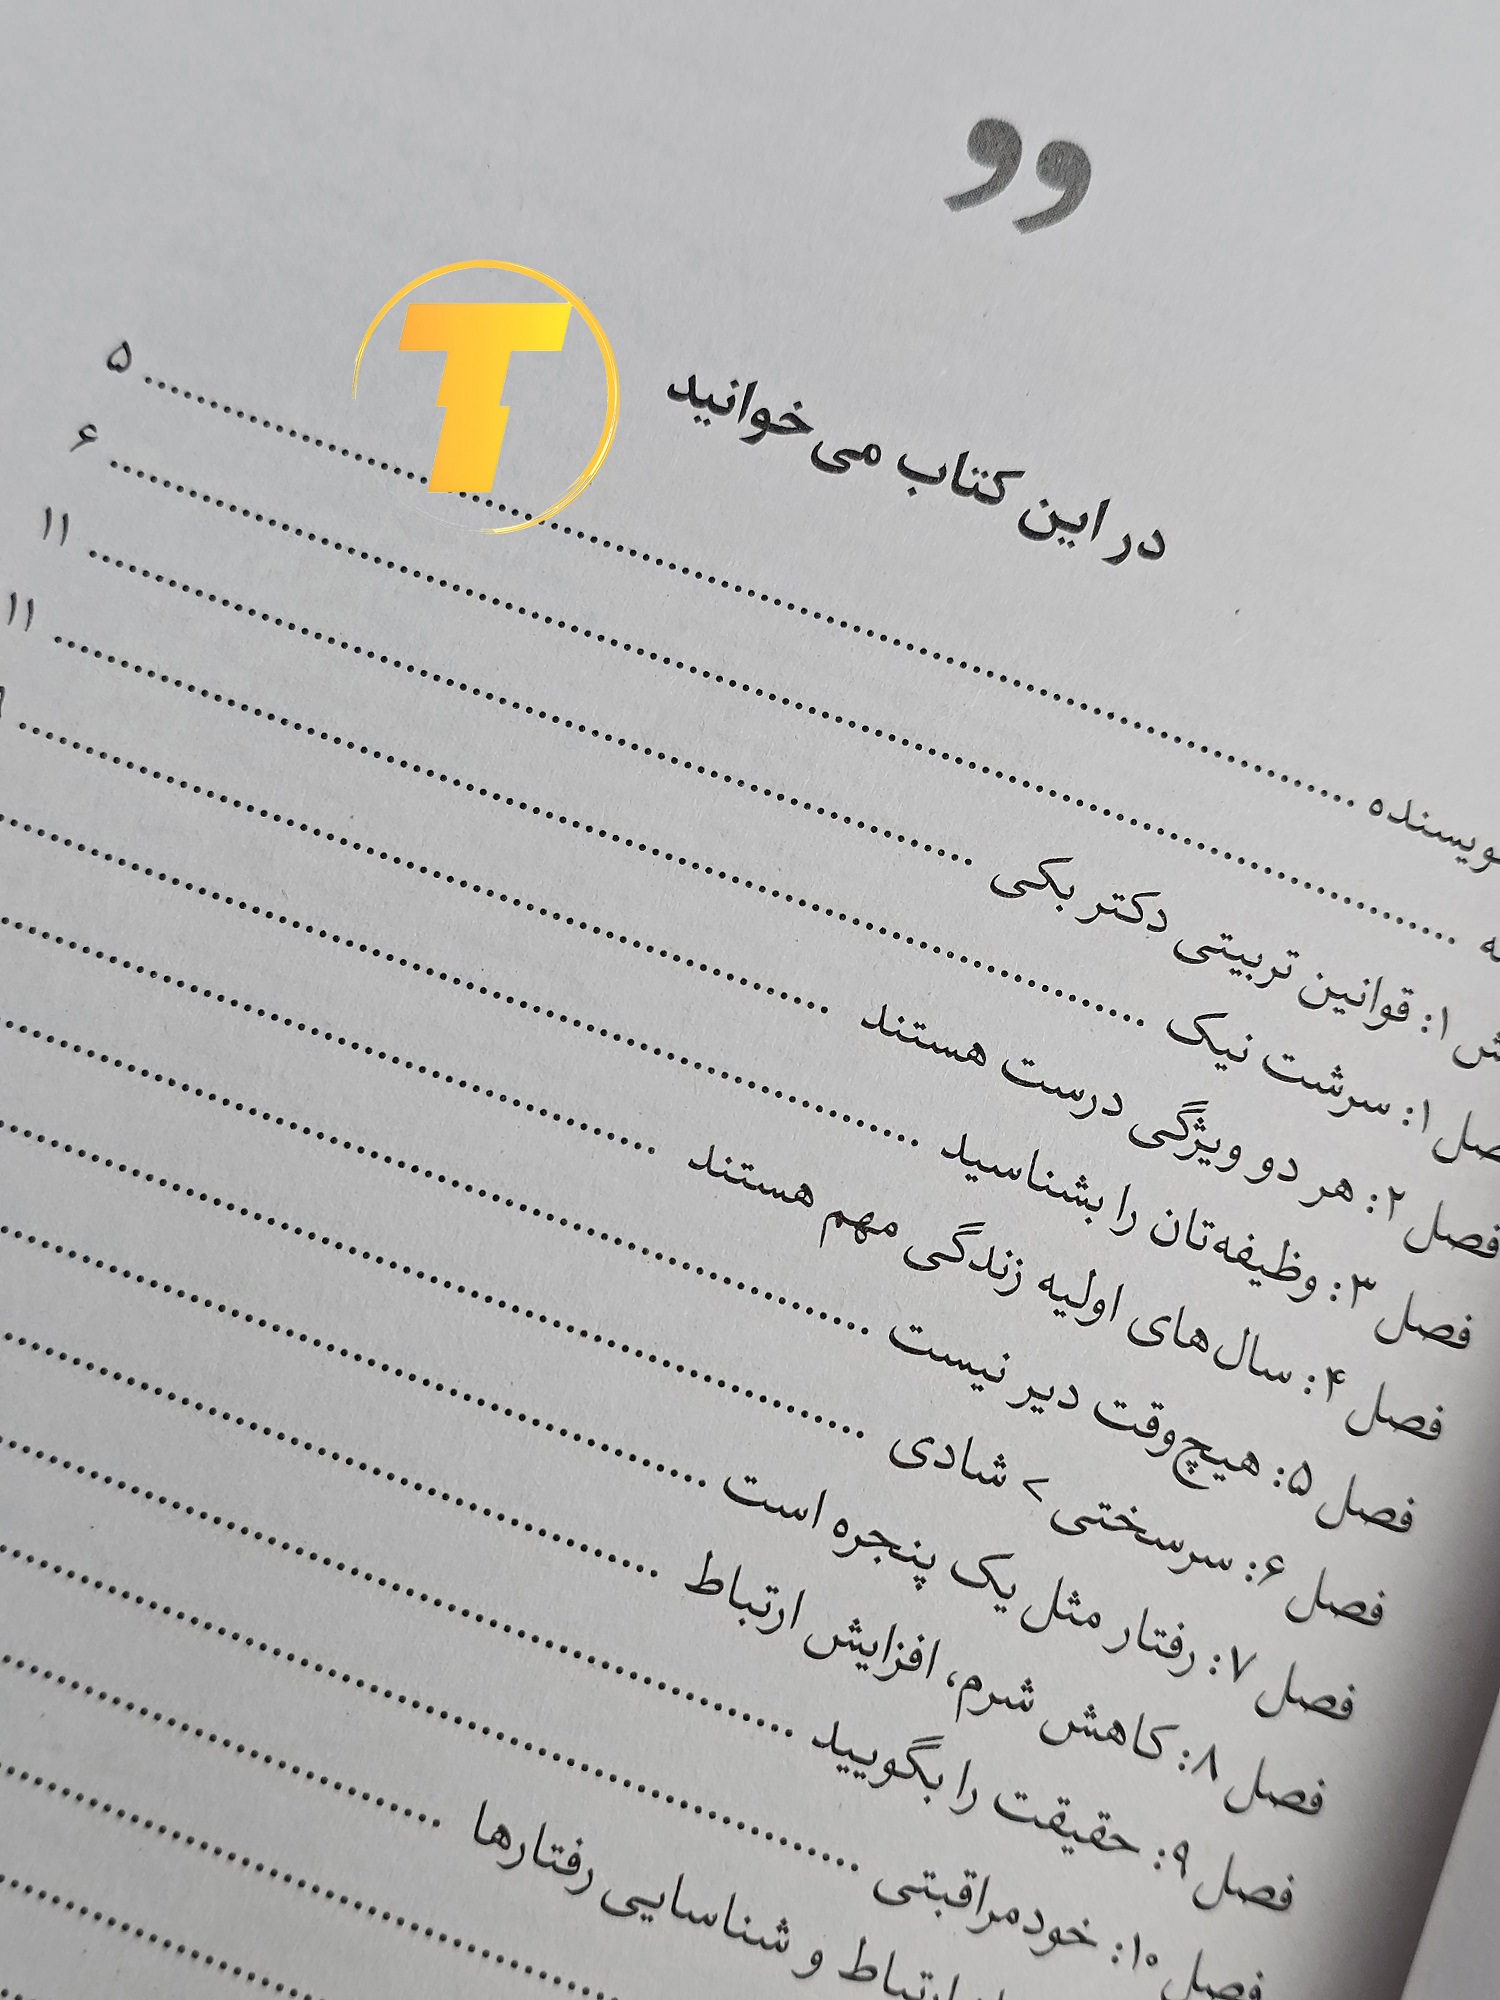 در این کتاب می‌خوانید
T
۵
۶
قوانین تربیتی دکتر بکی ۱: ۱۱
۱: سرشت نیک ۱۱
فصل ۲: هر دو ویژگی درست هستند
فصل ۳: وظیفه‌تان را بشناسید
فصل ۴: سال‌های اولیه زندگی مهم هستند
فصل ۵: هیچ‌وقت دیر نیست
فصل ۶: سرسختی > شادی
فصل ۷: رفتار مثل یک پنجره است
فصل ۸: کاهش شرم، افزایش ارتباط
فصل ۹: حقیقت را بگویید
فصل ۱۰: خودمراقبتی
ارتباط و شناسایی رفتارها